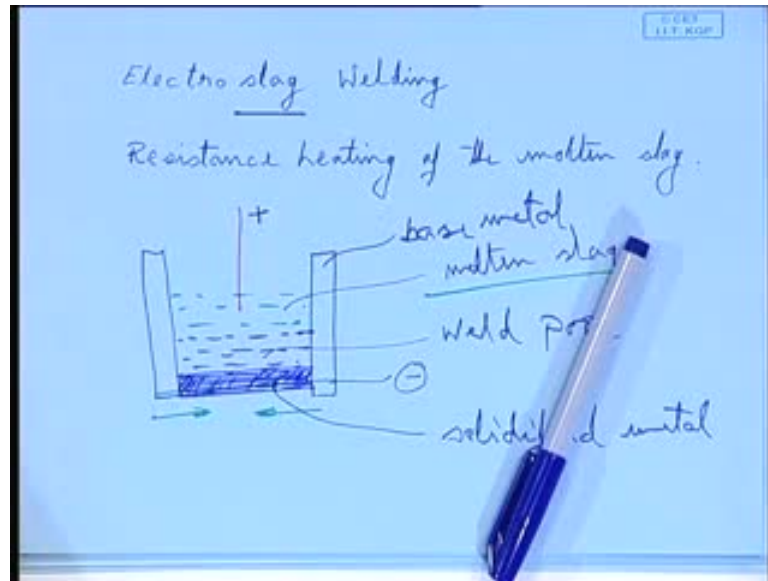 CCET
I.I.T. KGP
Electro slag Welding
Resistance heating of the molten slag.
+
base metal
molten slag
weld poo
−
solidi d metal